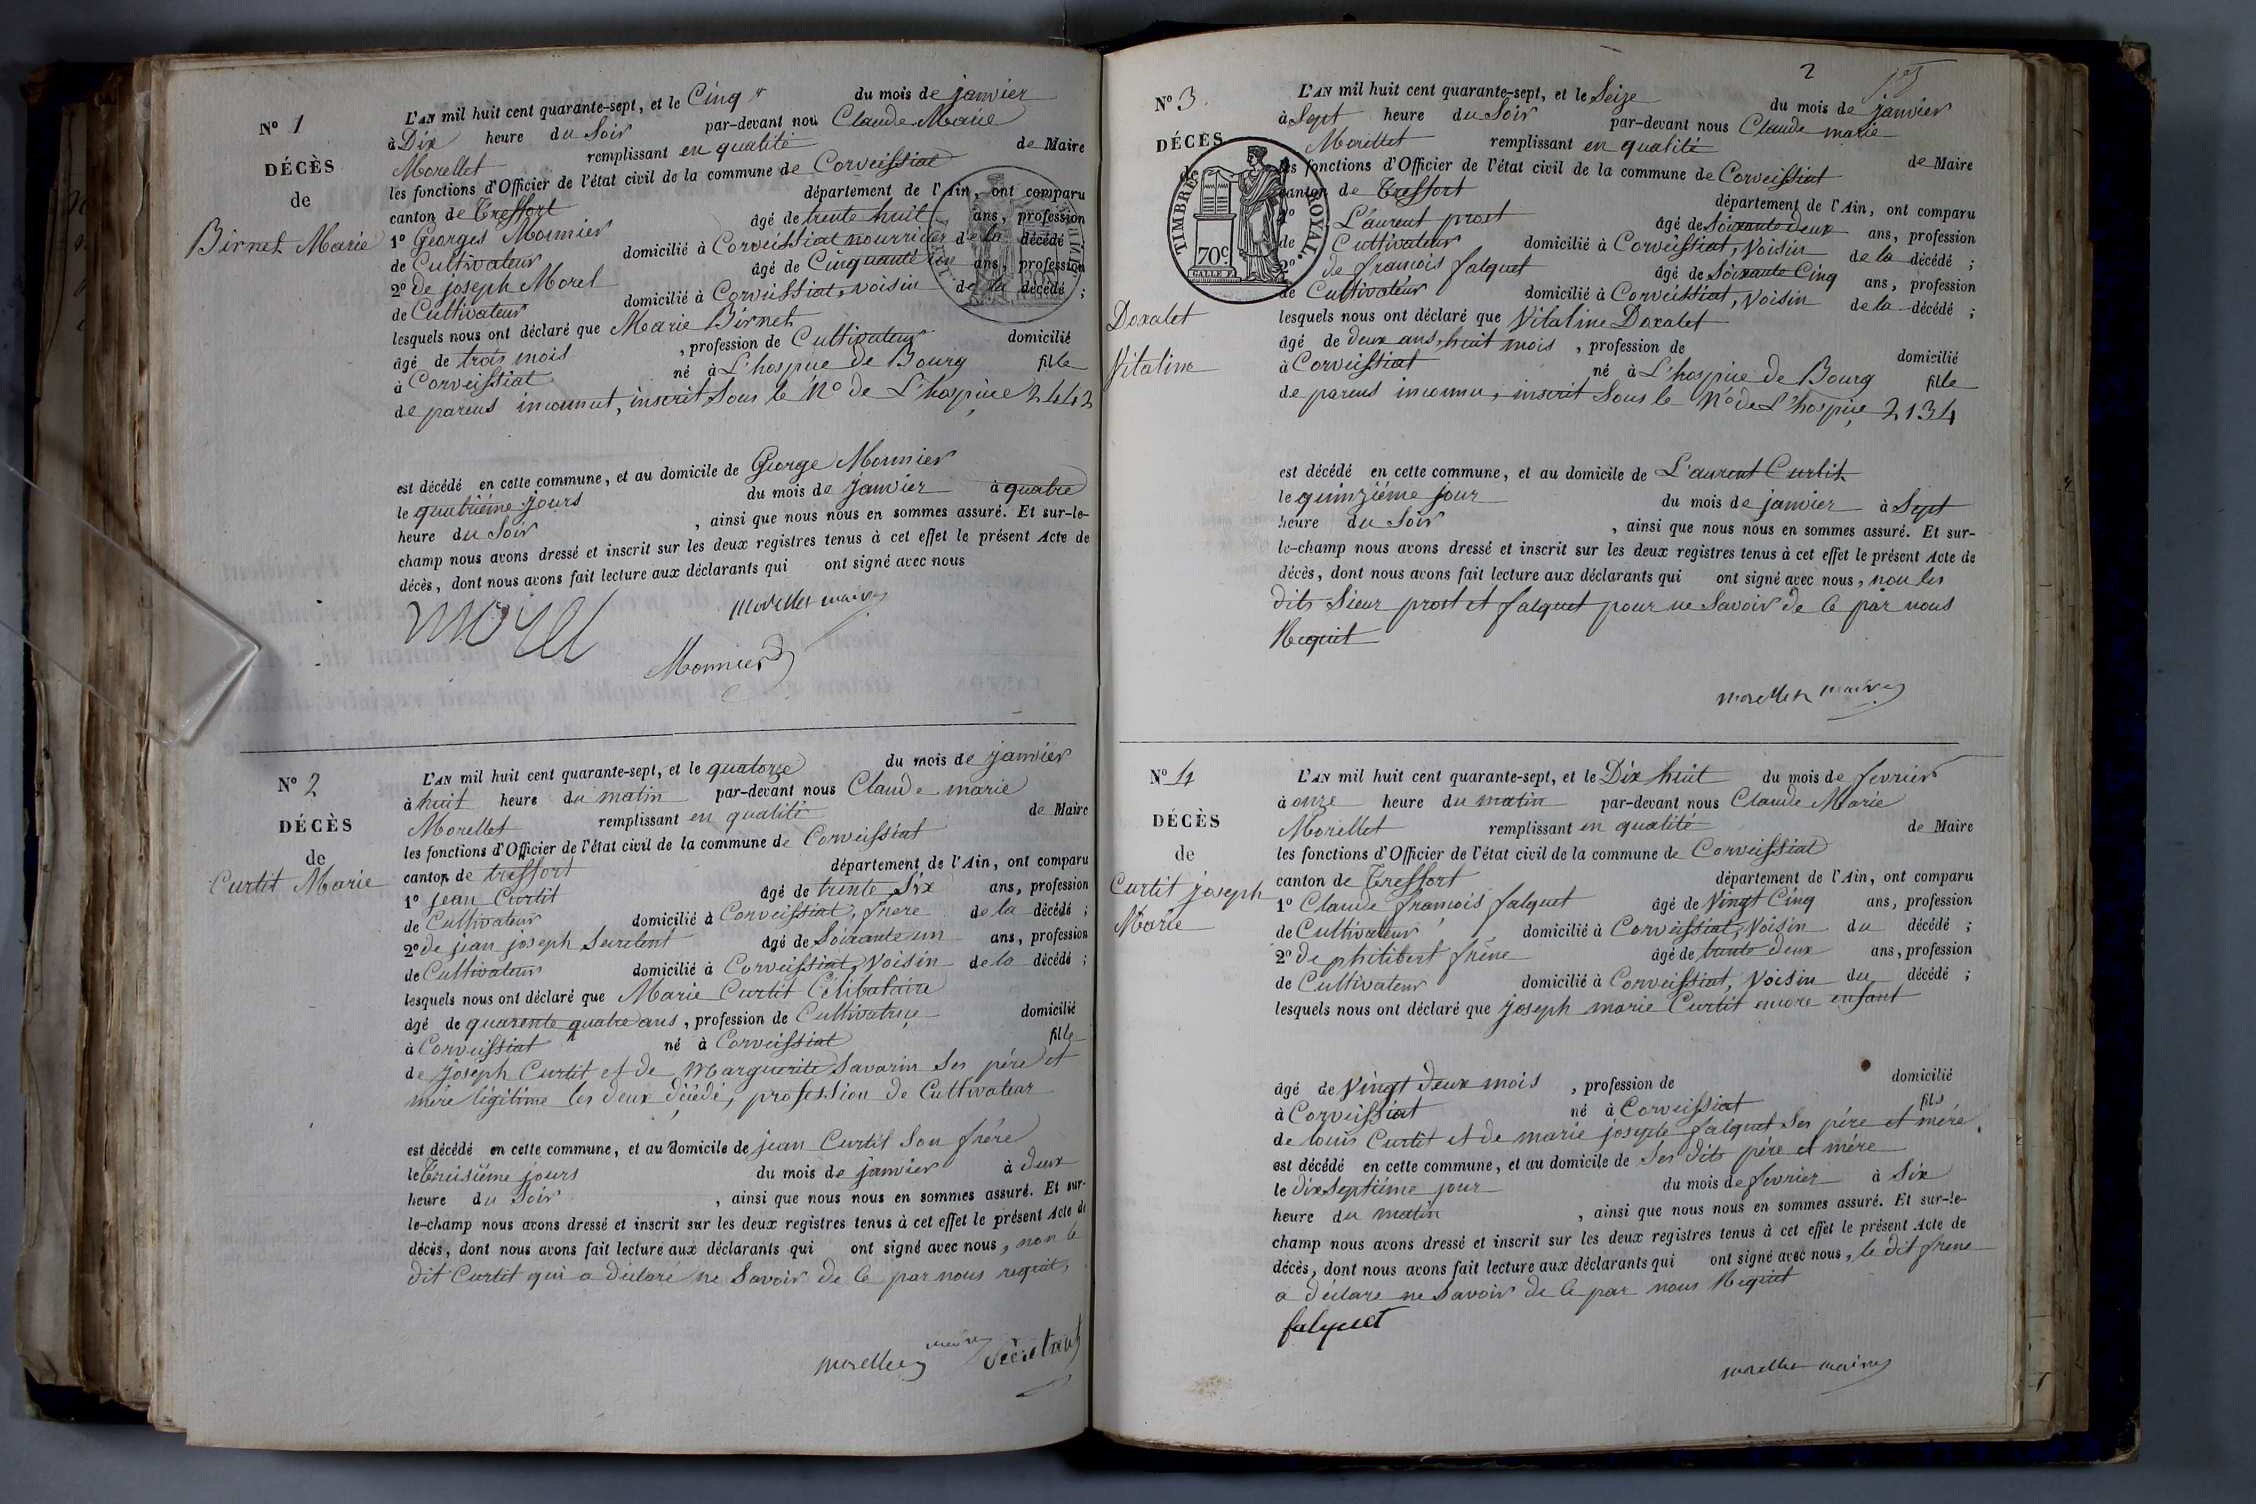 N° 1
DÉCÈS
de
Birnet Marie
L'AN mil huit cent quarante-sept, et le Cinq du mois de janvier
à Dix heure du Soir par-devant nou Claude Marie
Morellet remplissant en qualité de Maire
les fonctions d'Officier de l'état civil de la commune de Corveissiat
canton de Treffort département de l'Ain, ont comparu
1° Georges Monnier âgé de trente huit ans, profession
de Cultivateur domicilié à Corveissiat nourricier de la décédé
2° de joseph Morel âgé de Cinquante un ans, profession
de Cultivateur domicilié à Corveissiat, voisin de la décédé ;
lesquels nous ont déclaré que Marie Birnet
âgé de trois mois , profession de Cultivateur domicilié
à Corveissiat né à L'hospice de Bourg fille
de parens inconnut, inscrit Sous le N° de L'hospice 2442
est décédé en cette commune, et au domicile de George Monnier
le quatrième jours du mois de janvier à quatre
heure du Soir , ainsi que nous nous en sommes assuré. Et sur-le-
champ nous avons dressé et inscrit sur les deux registres tenus à cet effet le présent Acte de
décès, dont nous avons fait lecture aux déclarants qui ont signé avec nous
morel
morellet maire
Monnier
N° 2
DÉCÈS
de
Curtit Marie
L'AN mil huit cent quarante-sept, et le quatorze du mois de janvier
à huit heure du matin par-devant nous Claude marie
Morellet remplissant en qualité de Maire
les fonctions d'Officier de l'état civil de la commune de Corveissiat
canton de treffort département de l'Ain, ont comparu
1° jean Curtit âgé de trente Six ans, profession
de Cultivateur domicilié à Corveissiat, frere de la décédé ;
2° de jean joseph âgé de Soixante un ans, profession
de Cultivateur domicilié à Corveissiat, Voisin de la décédé ;
lesquels nous ont déclaré que Marie Curtit Célibataire
âgé de quarente quatre ans , profession de Cultivatrice domicilié
à Corveissiat né à Corveissiat fille
de Joseph Curtit et de Marguerite Savarin Ses père et
mère légitime les deux décédé, profession de Cultivateur
est décédé en cette commune, et au domicile de jean Curtit Son frère
le Treisième jours du mois de janvier à deux
heure du Soir , ainsi que nous nous en sommes assuré. Et sur-
le-champ nous avons dressé et inscrit sur les deux registres tenus à cet effet le présent Acte de
décès, dont nous avons fait lecture aux déclarants qui ont signé avec nous, non le
dit Curtit qui a déclaré ne Savoir de Ce par nous requit,
morellet maire
N° 3.
DÉCÈS
de
Doxalet
Vitaline
2
TIMBRE ROYAL.
70c.
L'AN mil huit cent quarante-sept, et le Seize du mois de janvier
à Sept heure du Soir par-devant nous Claude marie
Morellet remplissant en qualité de Maire
les fonctions d'Officier de l'état civil de la commune de Corveissiat
canton de Treffort département de l'Ain, ont comparu
1° L'aurent prost âgé de Soixante deux ans, profession
de Cultivateur domicilié à Corveissiat, Voisin de la décédé ;
2° de framois falquet âgé de Soixante Cinq ans, profession
de Cultivateur domicilié à Corveissiat, Voisin de la décédé ;
lesquels nous ont déclaré que Vitaline Doxalet
âgé de deux ans, huit mois , profession de domicilié
à Corveissiat né à L'hospice de Bourg fille
de parens inconnu, inscrit Sous le N° de L'hospice 2134
est décédé en cette commune, et au domicile de L'aurent Curtit
le quinzième jour du mois de janvier à Sept
heure du Soir , ainsi que nous nous en sommes assuré. Et sur-
le-champ nous avons dressé et inscrit sur les deux registres tenus à cet effet le présent Acte de
décès, dont nous avons fait lecture aux déclarants qui ont signé avec nous, non les
dits Sieur prost et falquet pour ne Savoir de Ce par nous
Requit
morellet maire
N° 4
DÉCÈS
de
Curtit joseph
Marie
L'AN mil huit cent quarante-sept, et le Dix huit du mois de fevrier
à onze heure du matin par-devant nous Claude Marie
Morellet remplissant en qualité de Maire
les fonctions d'Officier de l'état civil de la commune de Corveissiat
canton de Treffort département de l'Ain, ont comparu
1° Claude framois falquet âgé de Vingt Cinq ans, profession
de Cultivateur domicilié à Corveissiat, Voisin du décédé ;
2° De philibert frêne âgé de trente deux ans, profession
de Cultivateur domicilié à Corveissiat, Voisin du décédé ;
lesquels nous ont déclaré que joseph marie Curtit encore enfant
âgé de Vingt deux mois , profession de domicilié
à Corveissiat né à Corveissiat fils
de louis Curtit et de marie josephe falquet Ses père et mère,
est décédé en cette commune, et au domicile de Ses dits père et mère
le dix Septième jour du mois de fevrier à Six
heure du matin , ainsi que nous nous en sommes assuré. Et sur-le-
champ nous avons dressé et inscrit sur les deux registres tenus à cet effet le présent Acte de
décès, dont nous avons fait lecture aux déclarants qui ont signé avec nous, le dit frene
a déclare ne Savoir de Ce par nous Requit
falquet
morellet maire